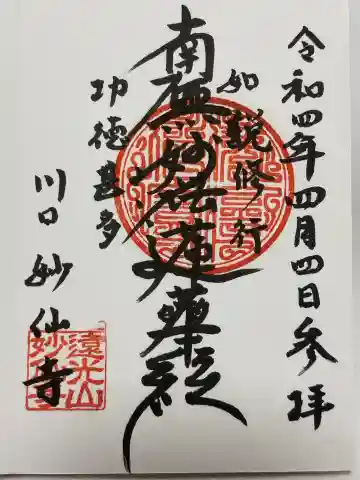 令和四年四月四日参拝
如説修行
南無妙法蓮華経
功徳甚多
川口妙仙寺
遠光山
妙仙寺